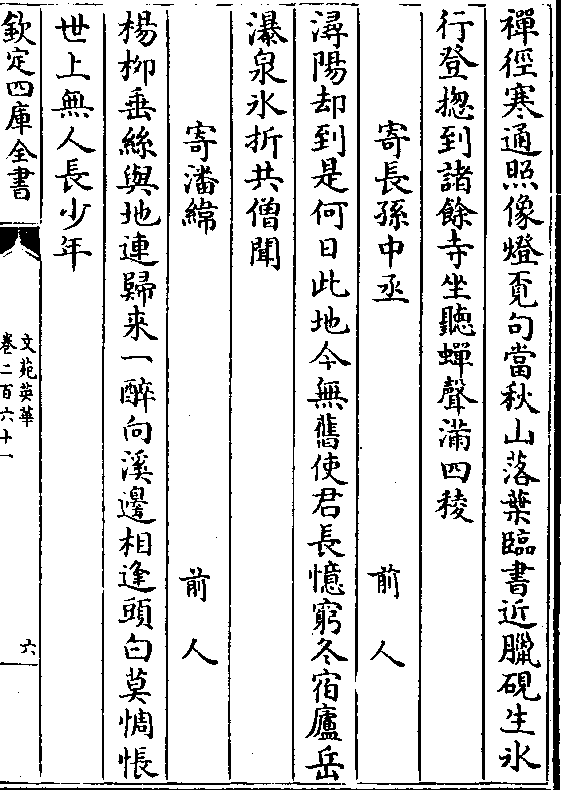 禪徑寒通照像燈覔句當秋山落葉臨書近臘硯生氷
行登揔到諸餘寺坐聽蟬聲滿四稜
寄長孫中丞　前人
潯陽却到是何日此地今無舊使君長憶窮冬宿廬岳
瀑泉氷折共僧聞
寄潘緯　前人
楊柳垂絲與地連歸来一醉向溪邊相逢頭白莫惆悵
世上無人長少年
欽定四庫全書
文苑英華
卷二百六十一
六